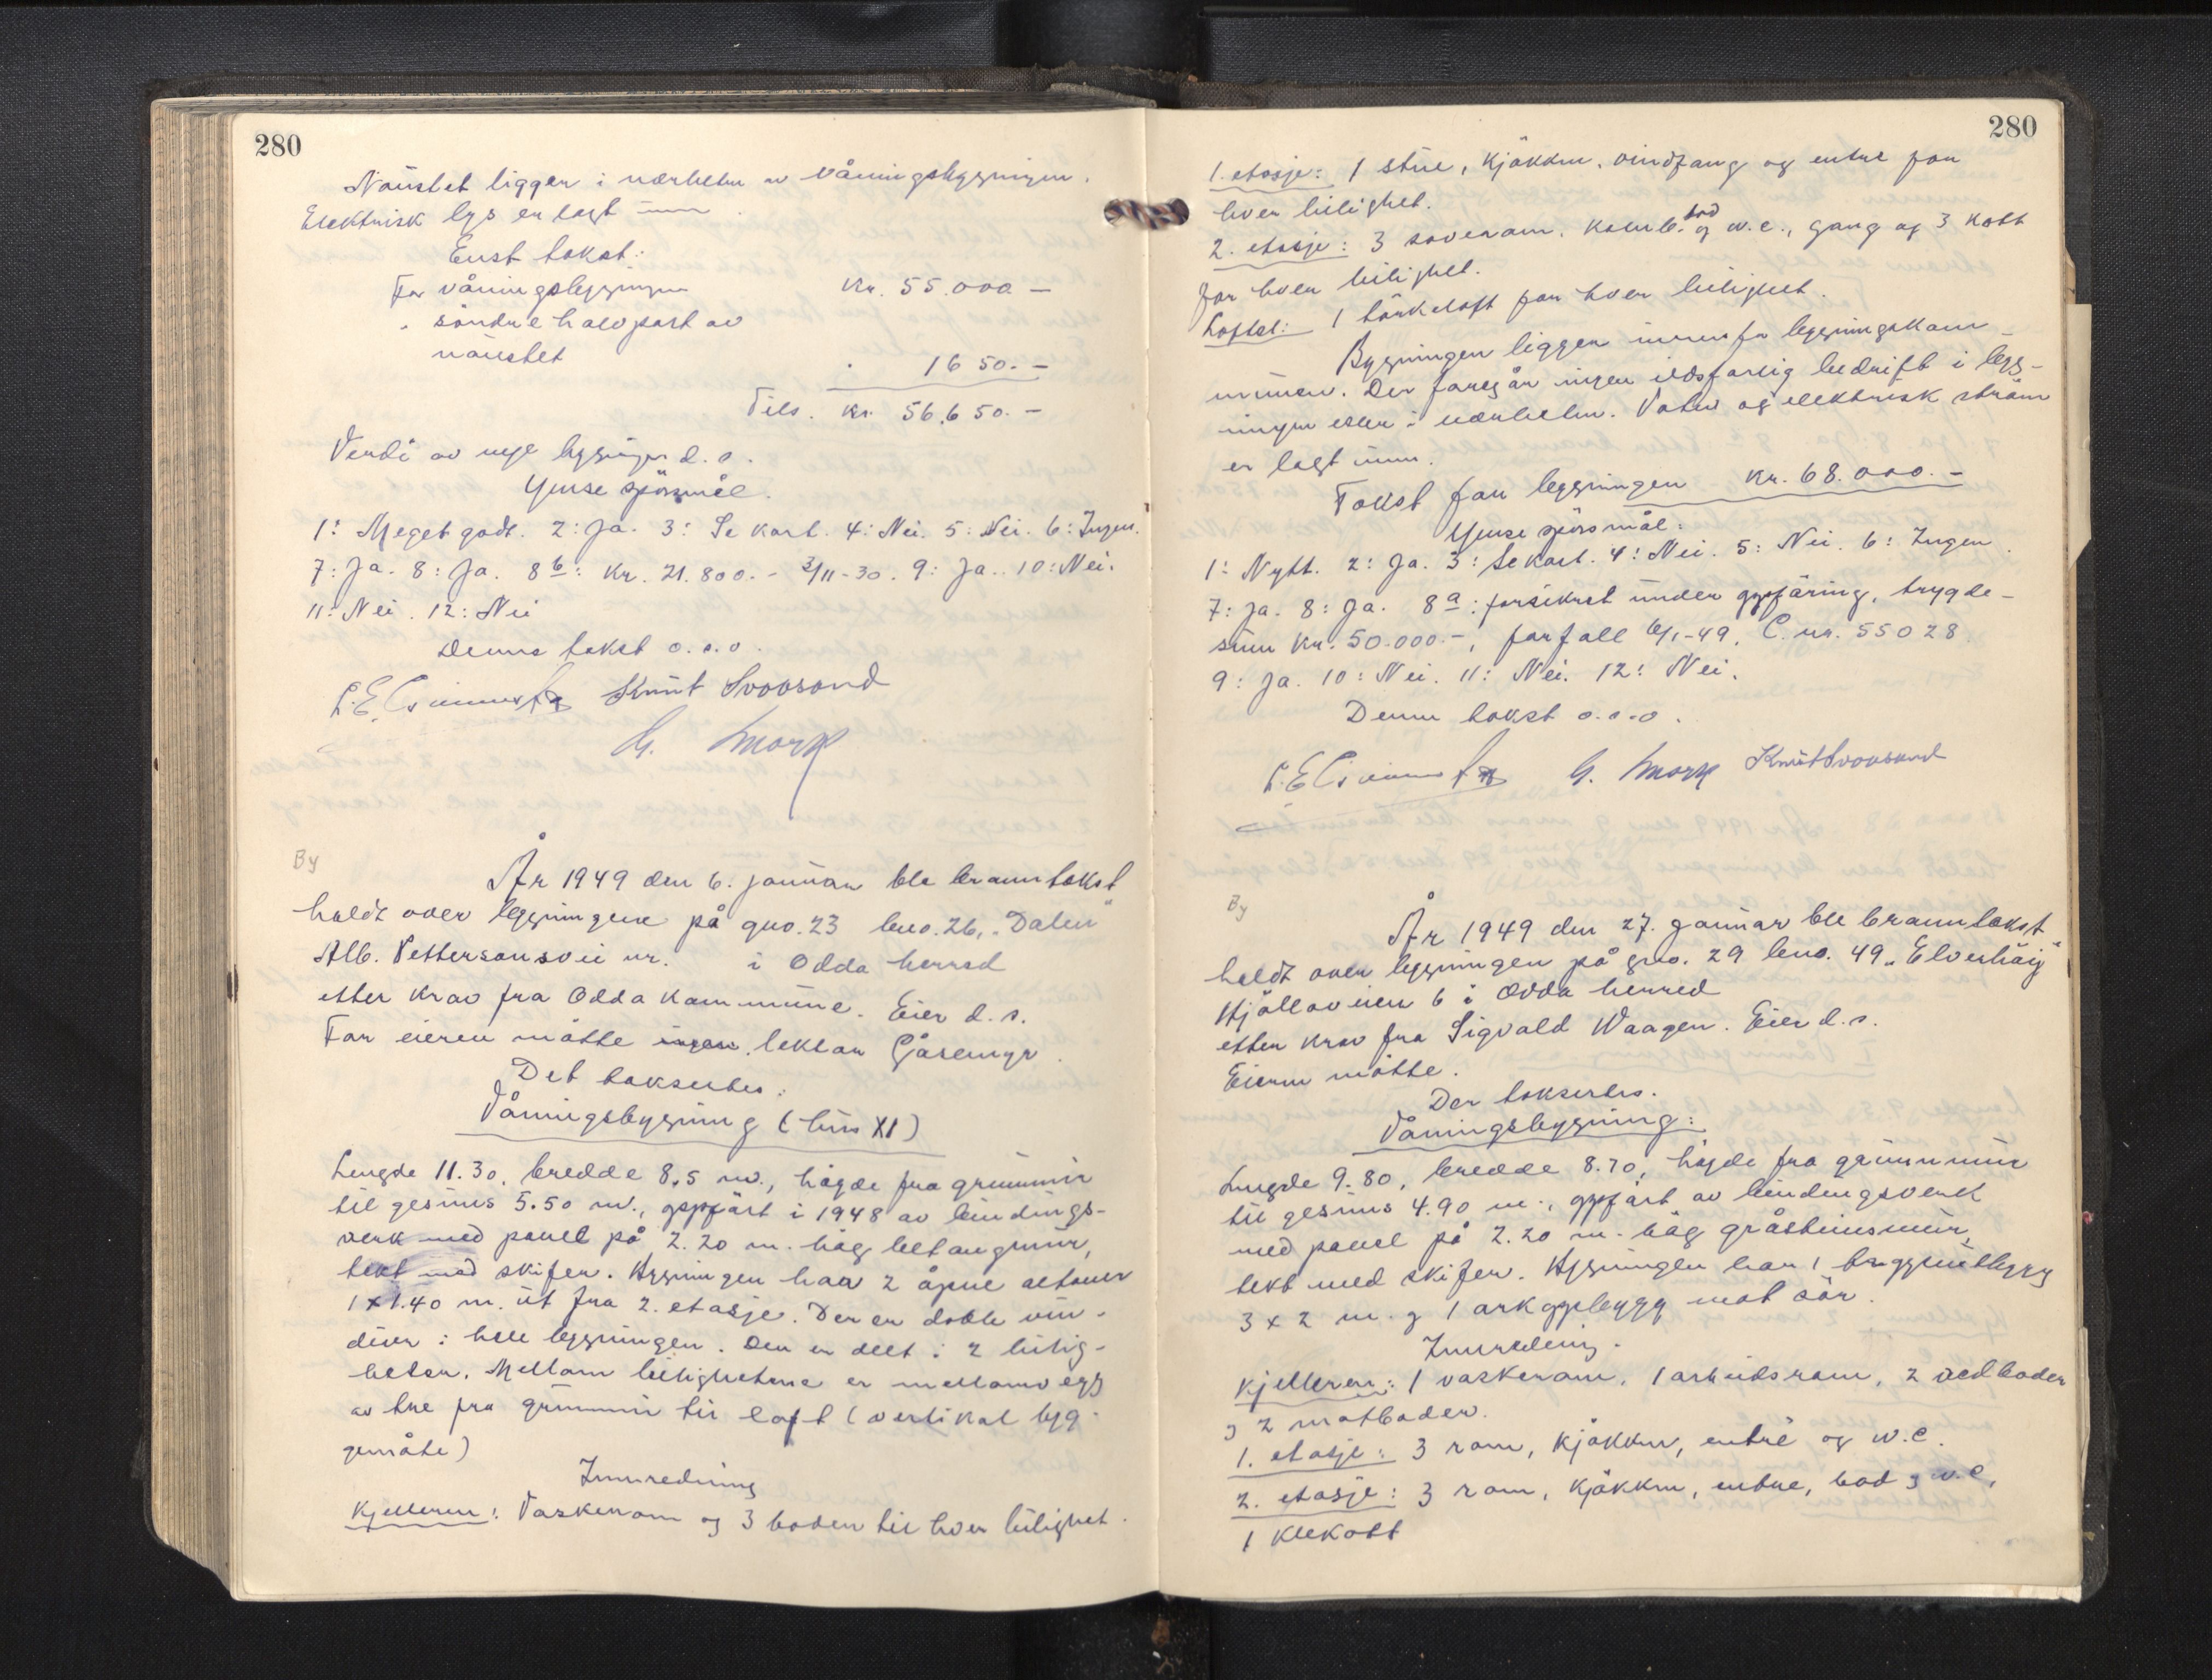 280
Naustet ligger i nærheten av våningsbygningen.
Elektrisk lys er lagt inn
Enst takst:
For våningsbygningen kr. 55.000 –
" söndre halvpart av
naustet " 1650.–
Tils. kr. 56.650.–
Verdi av nye bygninger d. s.
Ymse spörsmål.
1: Meget godt. 2: Ja. 3: Se kart. 4: Nei. 5: Nei. 6: Ingen.
7: Ja. 8: Ja. 8b: Kr. 21.800.– 3/11-30. 9: Ja. 10: Nei.
11: Nei. 12: Nei
Denne takst o.s.v.
L.E. Knut Svovsand
G. Mork
By
År 1949 den 6. januar ble branntakst
holdt over bygningene på gno. 23 bno. 26, "Dalen"
Alb. Pettersonsvei nr. i Odda herred
etter krav fra Odda kommune. Eier d. s.
For eieren møtte ingen. lektor Gåsemyr.
Det taksertes:
Våningsbygning (hus XI)
Lengde 11.30, bredde 8,5 m., högde fra grunnmur
til gesims 5.50 m., oppfört i 1948 av bindings-
verk med panel på 2.20 m. hög betongmur,
tekt med skifer. Bygningen har 2 åpne altaner
1 x 1.40 m. ut fra 2. etasje. Der er doble vin-
duer i hele bygningen. Den er delt i 2 leilig-
heter. Mellom leilighetene er mellomvegg
av tre fra grunnmur til loft (vertikal byg-
gemåte)
Innredning
Kjelleren: Vaskerom og 3 boder til hver leilighet.
280
1. etasje: 1 stue, kjökken, vindfang og entre for
hver leilighet.
2. etasje: 3 soverom, komb. bad og w.c., gang og 3 kott
for hver leilighet.
Loftet: 1 törkeloft for hver leilighet.
Bygningen ligger innenfor bygningskom-
munen. Der foregår ingen ildsfarlig bedrift i byg-
ningen eller i nærheten. Vatn og elektrisk ström
er lagt inn.
Takst for bygningen kr. 68.000.–
Ymse spörsmål:
1: Nytt. 2: Ja. 3: Se kart. 4: Nei. 5: Nei. 6: Ingen.
7: Ja. 8: Ja. 8a: forsikret under oppföring, trygde-
sum kr. 50.000.–, forfall 6/1-49, C. nr. 55028.
9: Ja. 10: Nei. 11: Nei. 12: Nei.
Denne takst o.s.v.
L.E. G. Mork Knut Svovsand
By
År 1949 den 27. januar ble branntakst
holdt over bygningen på gno. 29 bno. 49 "Elverhöy"
Hjölloveien 6 i Odda herred
etter krav fra Sigvald Waagen. Eier d. s.
Eieren møtte.
Der taksertes.
Våningsbygning:
Lengde 9.80, bredde 8.70, högde fra grunnmur
til gesims 4.90 m., oppfört av bindingsverk
med panel på 2.20 m. hög gråsteinsmur,
tekt med skifer. Bygningen har 1 trappeutbygg
3 x 2 m. og 1 arkoppbygg mot sör.
Innredning.
Kjelleren: 1 vaskerom, 1 arbeidsrom, 2 vedboder
og 2 matboder.
1. etasje: 3 rom, kjökken, entré og w.c.
2. etasje: 3 rom, kjökken, entre, bad og w.c,
1 klekott